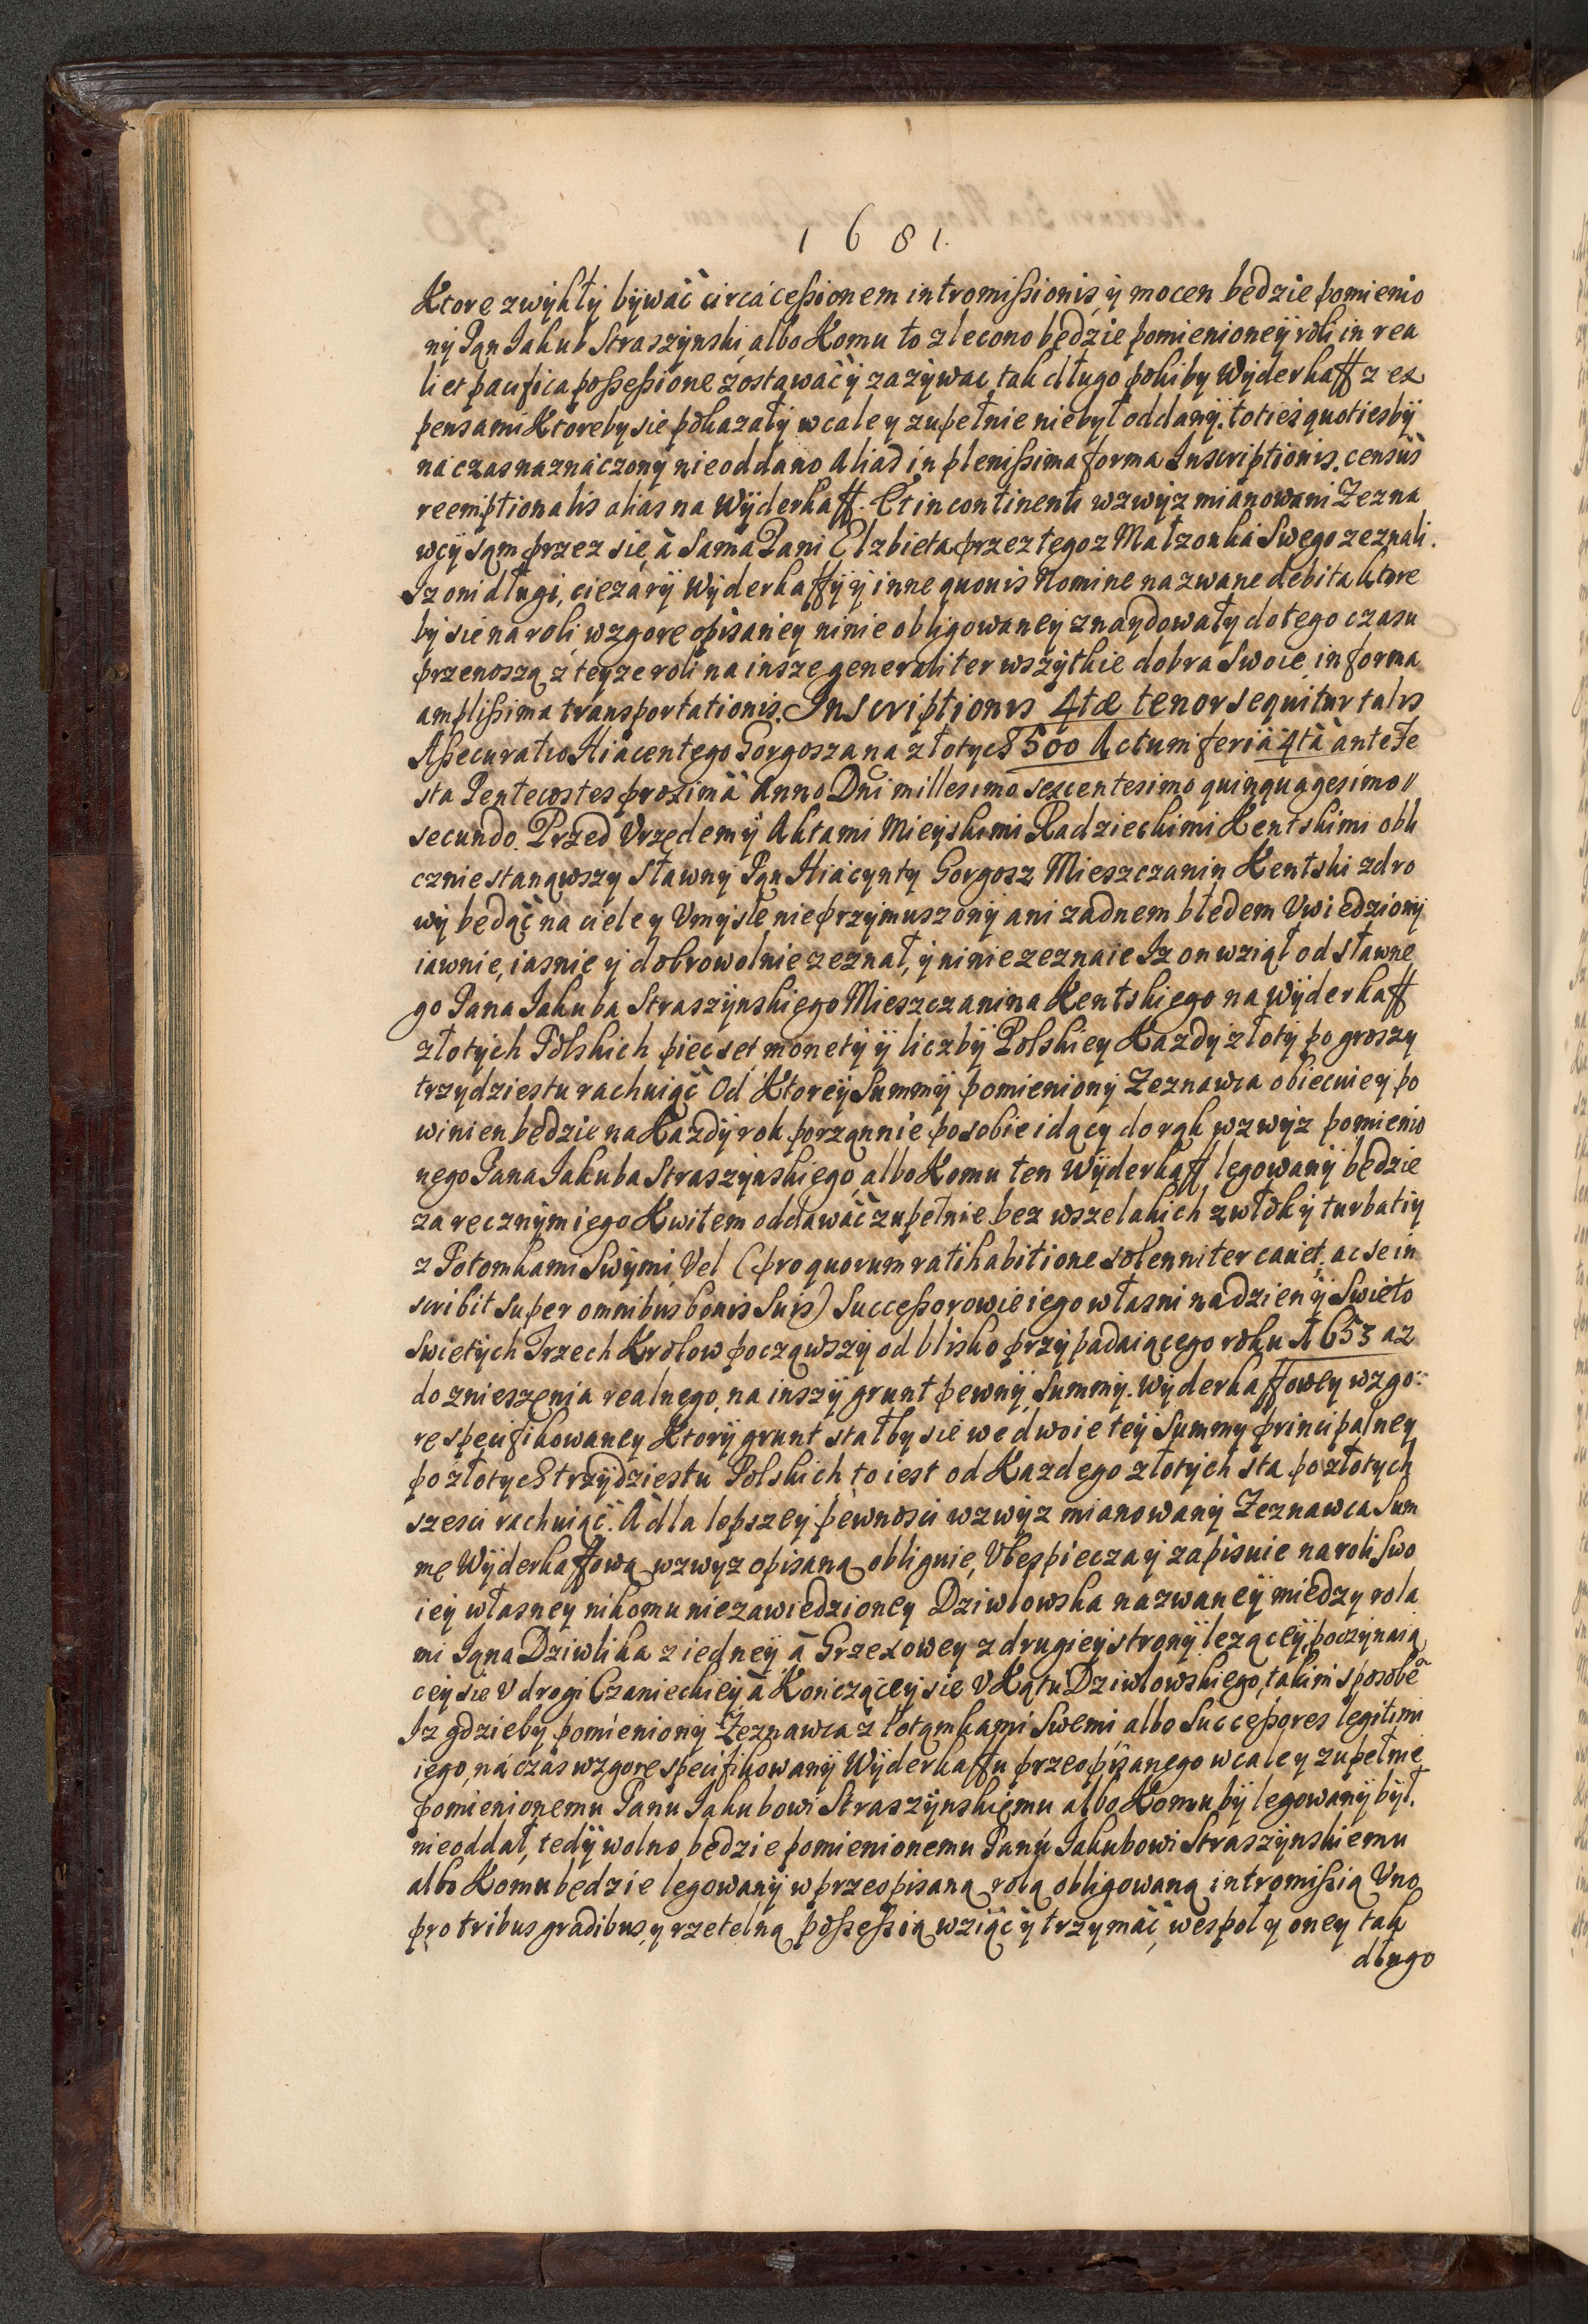 1681.
Ktore zwykły bywać circa cessionem intromissionis, y mocen będzie pomienio
ny Pan Jakub Straszynski, albo Komu to zlecono będzie pomienioney roli in rea
li et pacifica possessione zostawać y zazywac tak długo pokiby Wyderkaff z ex
pensami Ktoreby sie pokazały wcale y zupełnie niebył oddany. toties quotiesby
na czas naznaczony nieoddano Alias in plenissima forma Inscriptionis, census
reemptionalis alias na Wyderkaff. Et in continenti wzwyz mianowani Zezna
wcy sąm przez się, à Sama Pani Elzbieta przez tegoz Małzonka Swego zeznali.
Iz oni długi, ciezary Wyderkaffy y inne quouis Nomine nazwane debita ktore
by sie na roli, wzgore opisaney ninie obligowaney znaydowały do tego czasu
przenoszą z teyze roli na insze generaliter wszytkie dobra Swoie, in forma
amplissima transportationis. Inscriptionis 4tæ tenor sequitur talis
Assecuratio Hiacentego Gorgosza na złotych 500 Actum feriâ 4tâ ante Fe
sta Pentecostes proximâ Anno Dni millesimo sexcentesimo quinquagesimo //
secundo. Przed Vrzędem y Aktami Mieyskimi Radzieckimi Kentskimi obli
cznie stanąwszy Sławny Pan Hiacynty Gorgosz Mieszczanin Kentski zdro
wy będąc na ciele y Vmysle nie przymuszony ani zadnem błedem Vwiedziony
iawnie, iasnie y dobrowolnie zeznał, y ninie zeznaie Iz on wziął od Sławne
go Pana Jakuba Straszynskiego Mieszczanina Kentskiego na Wyderkaff
złotych Polskich piecset monety y liczby Polskiey Kazdy złoty po groszy
trzydziestu rachuiąc Od Ktorey Summy pomieniony Zeznawca obiecuie y po
winien będzie na Kazdy rok porządnie po sobie idący do rąk wzwyz pomienio
nego Pana Jakuba Straszynskiego, albo Komu ten Wyderkaff legowany będzie
za ręcznym iego Kwitem oddawać zupełnie bez wszelakich zwłoki turbatiy
z Potomkami Swymi, Vel (pro quorum ratihabitione solenniter cauet, ac se in
scribit Super omnibus bonis Suis) Successorowie iego własni na dzien y Swieto
Swietych Trzech Krolow począwszy od blisko przypadaiącego roku 1653 az
do znieszenia realnego, na inszy grunt pewny Summy. Wyderkaffowey wzgo:
re specifikowaney Ktory grunt stałby sie we dwoie tey Summy principalney
po złotych trzydziestu Polskich to iest od Kazdego złotych sta po złotych
szesci rachuiąc. A dla lepszey pewnosci wzwyz mianowany Zeznawca Sum
mę Wyderkaffową wzwyz opisaną obliguie, Vbespiecza y zapisuie na roli Swo
iey własney nikomu niezawiedzioney Dziwlowska nazwaney miedzy rola
mi Jana Dziwlika z iedney, à Grzexowey z drugiey strony lezącey, poczynaią
cey sie V drogi Czanieckiey à Konczącey sie V Kątu Dziwlowskiego, takim sposobẽ
Iz gdzieby pomieniony Zeznawca z Potomkami Swemi albo Successores legitimi
iego, na czas wzgore specifikowany Wyderkaffu przeopisanego wcale y zupełnie
pomienionemu Panu Jakubowi Straszynskiemu albo Komu by legowany był.
nieoddał, tedy wolno będzie pomienionemu Panu Jakubowi Straszynskiemu
albo Komu będzie legowany w przeopisaną rolą obligowaną intromissią Vno
pro tribus gradibus, y rzetelną possessią wziąc y trzymać, wespoł y oney tak
długo